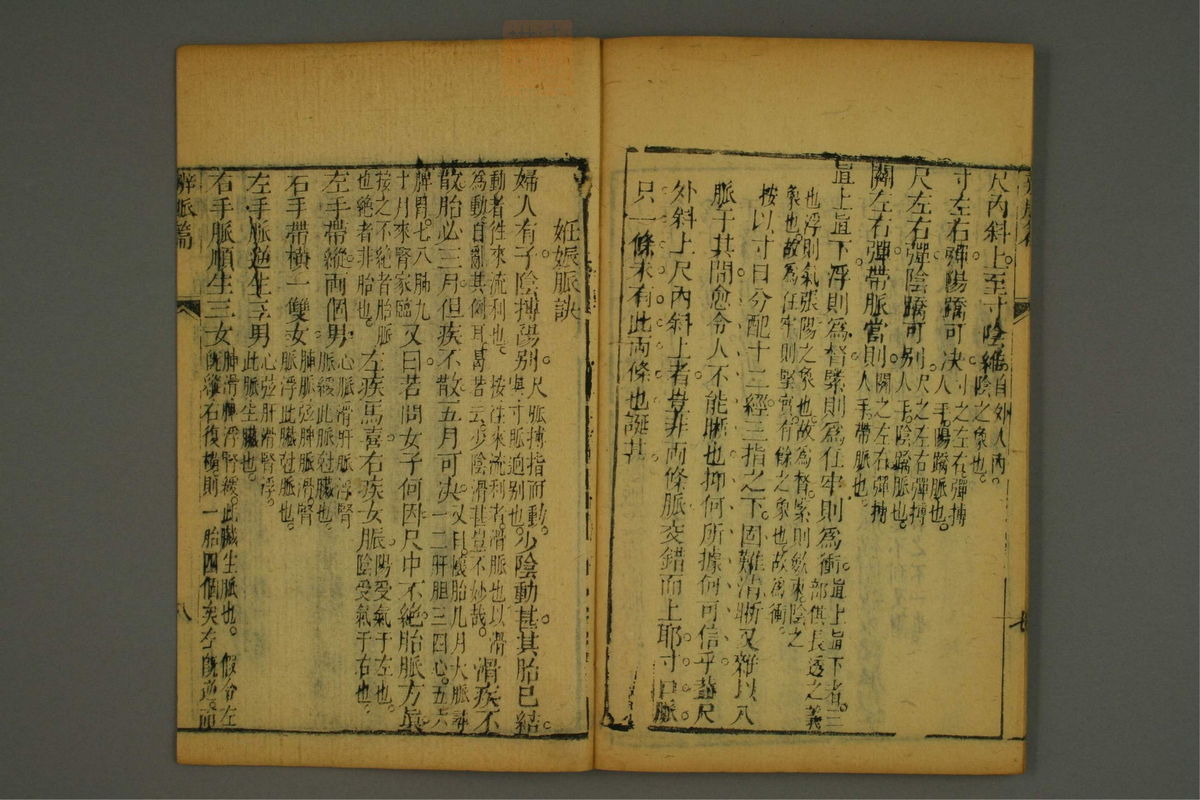 尺內斜上至寸陰維自外入內。陰之象也。
寸左右彈陽蹻可决寸之左右彈摶人手。陽蹻脈也。
尺左右彈陰蹻可別尺之左右彈摶人手。陰蹻脈也。
關左右彈帶脈當則關之左右彈摶人手。帶脈也。
直上直下浮則爲督緊則爲任牢則爲衝。直上直下者。三部俱長透之義
也浮則氣張陽之象也。故爲督。緊則斂束陰之
象也。故爲任牢則堅實。有餘之象也故爲衝。
按以寸口分配十二經三指之下。固難清晰又雜以八
脈于其間愈令人不能晰也抑何所據何可信乎葢尺
外斜上尺內斜上者豈非兩條脈交錯而上耶寸口脈
只一條未有此兩條也誕甚
妊娠脈訣
婦人有子陰摶陽别。尺脈摶指而動。與寸脈逈别也。少陰動甚其胎已結
動者徃來流利也。按往來流利者滑脈也以滑
為動。自亂其例耳。曷若云。少陰滑甚豈不妙哉。滑疾不
散。胎必三月但疾不散五月可决。又曰。懷胎几月大脈尋一二肝胆三四心。五六
脾胃。七八肺九
十月來腎家臨又曰若問女子何因尺中不絶胎脈方眞
按之不絶者胎脈
也絶者非胎也。左疾爲喜。右疾女脈陽受氣于左也。陰受氣于右也。
左手帶縱兩個男。心脈滑肝脈浮腎脈緩此脈尅臟也。
右手帶横一雙女。肺脈弦脾脈滑腎脈浮此臟尅脈也。
左手脈逆生三男心弦肝滑腎浮。此脈生臟也。
右手脈順生三女肺滑脾浮腎緩。此臟生脈也。假令左旣縱右復横。則一胎四個矣左旣逆。而
辨脈篇
八
七